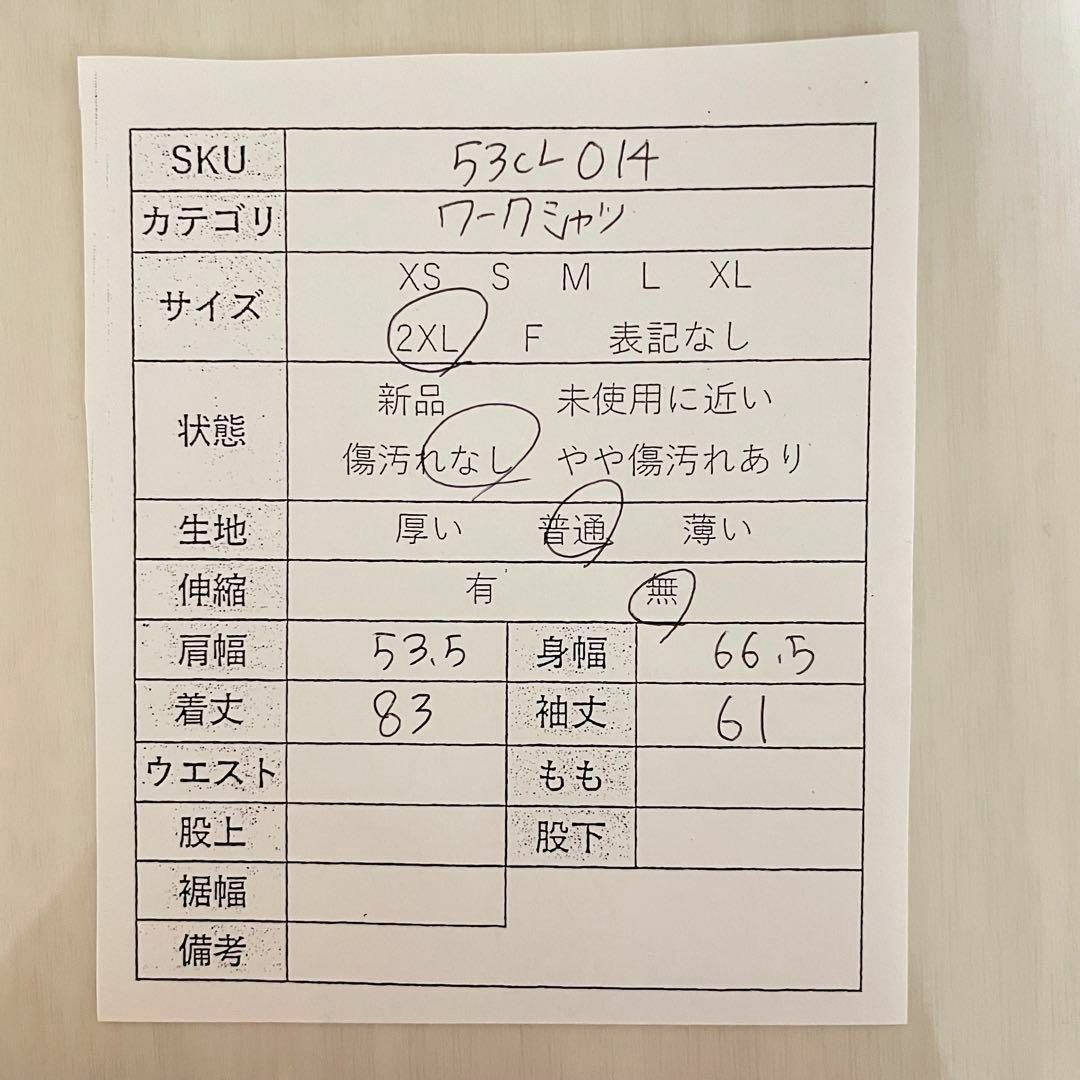 SKU 53CL014
カテゴリ ワークシャツ
サイズ XS S M L XL
2XL F 表記なし
状態 新品 未使用に近い
傷汚れなし やや傷汚れあり
生地 厚い 普通 薄い
伸縮 有 無
肩幅 53.5 身幅 66.5
着丈 83 袖丈 61
ウエスト もも
股上 股下
裾幅
備考